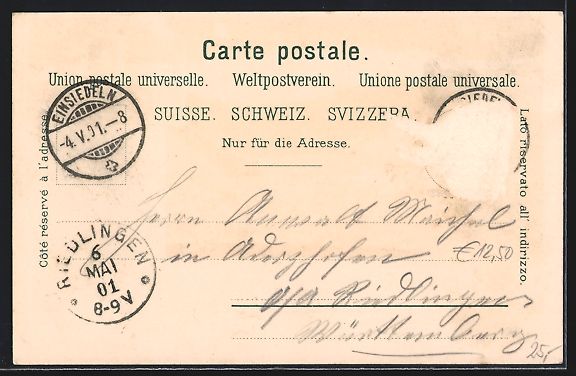 Carte postale.
Union postale universelle. Weltpostverein. Unione postale universale.
SUISSE. SCHWEIZ. SVIZZERA.
Nur für die Adresse.
Côté réservé à l'adresse.
Lato riservato all' indirizzo.
EINSIEDELN
-4.V.01.-8
SIEDEL
RIEDLINGEN
6
MAI
01
8-9V
Herrn Anwalt
in
€12,50
a/d Riedlingen
Württemberg
25,-